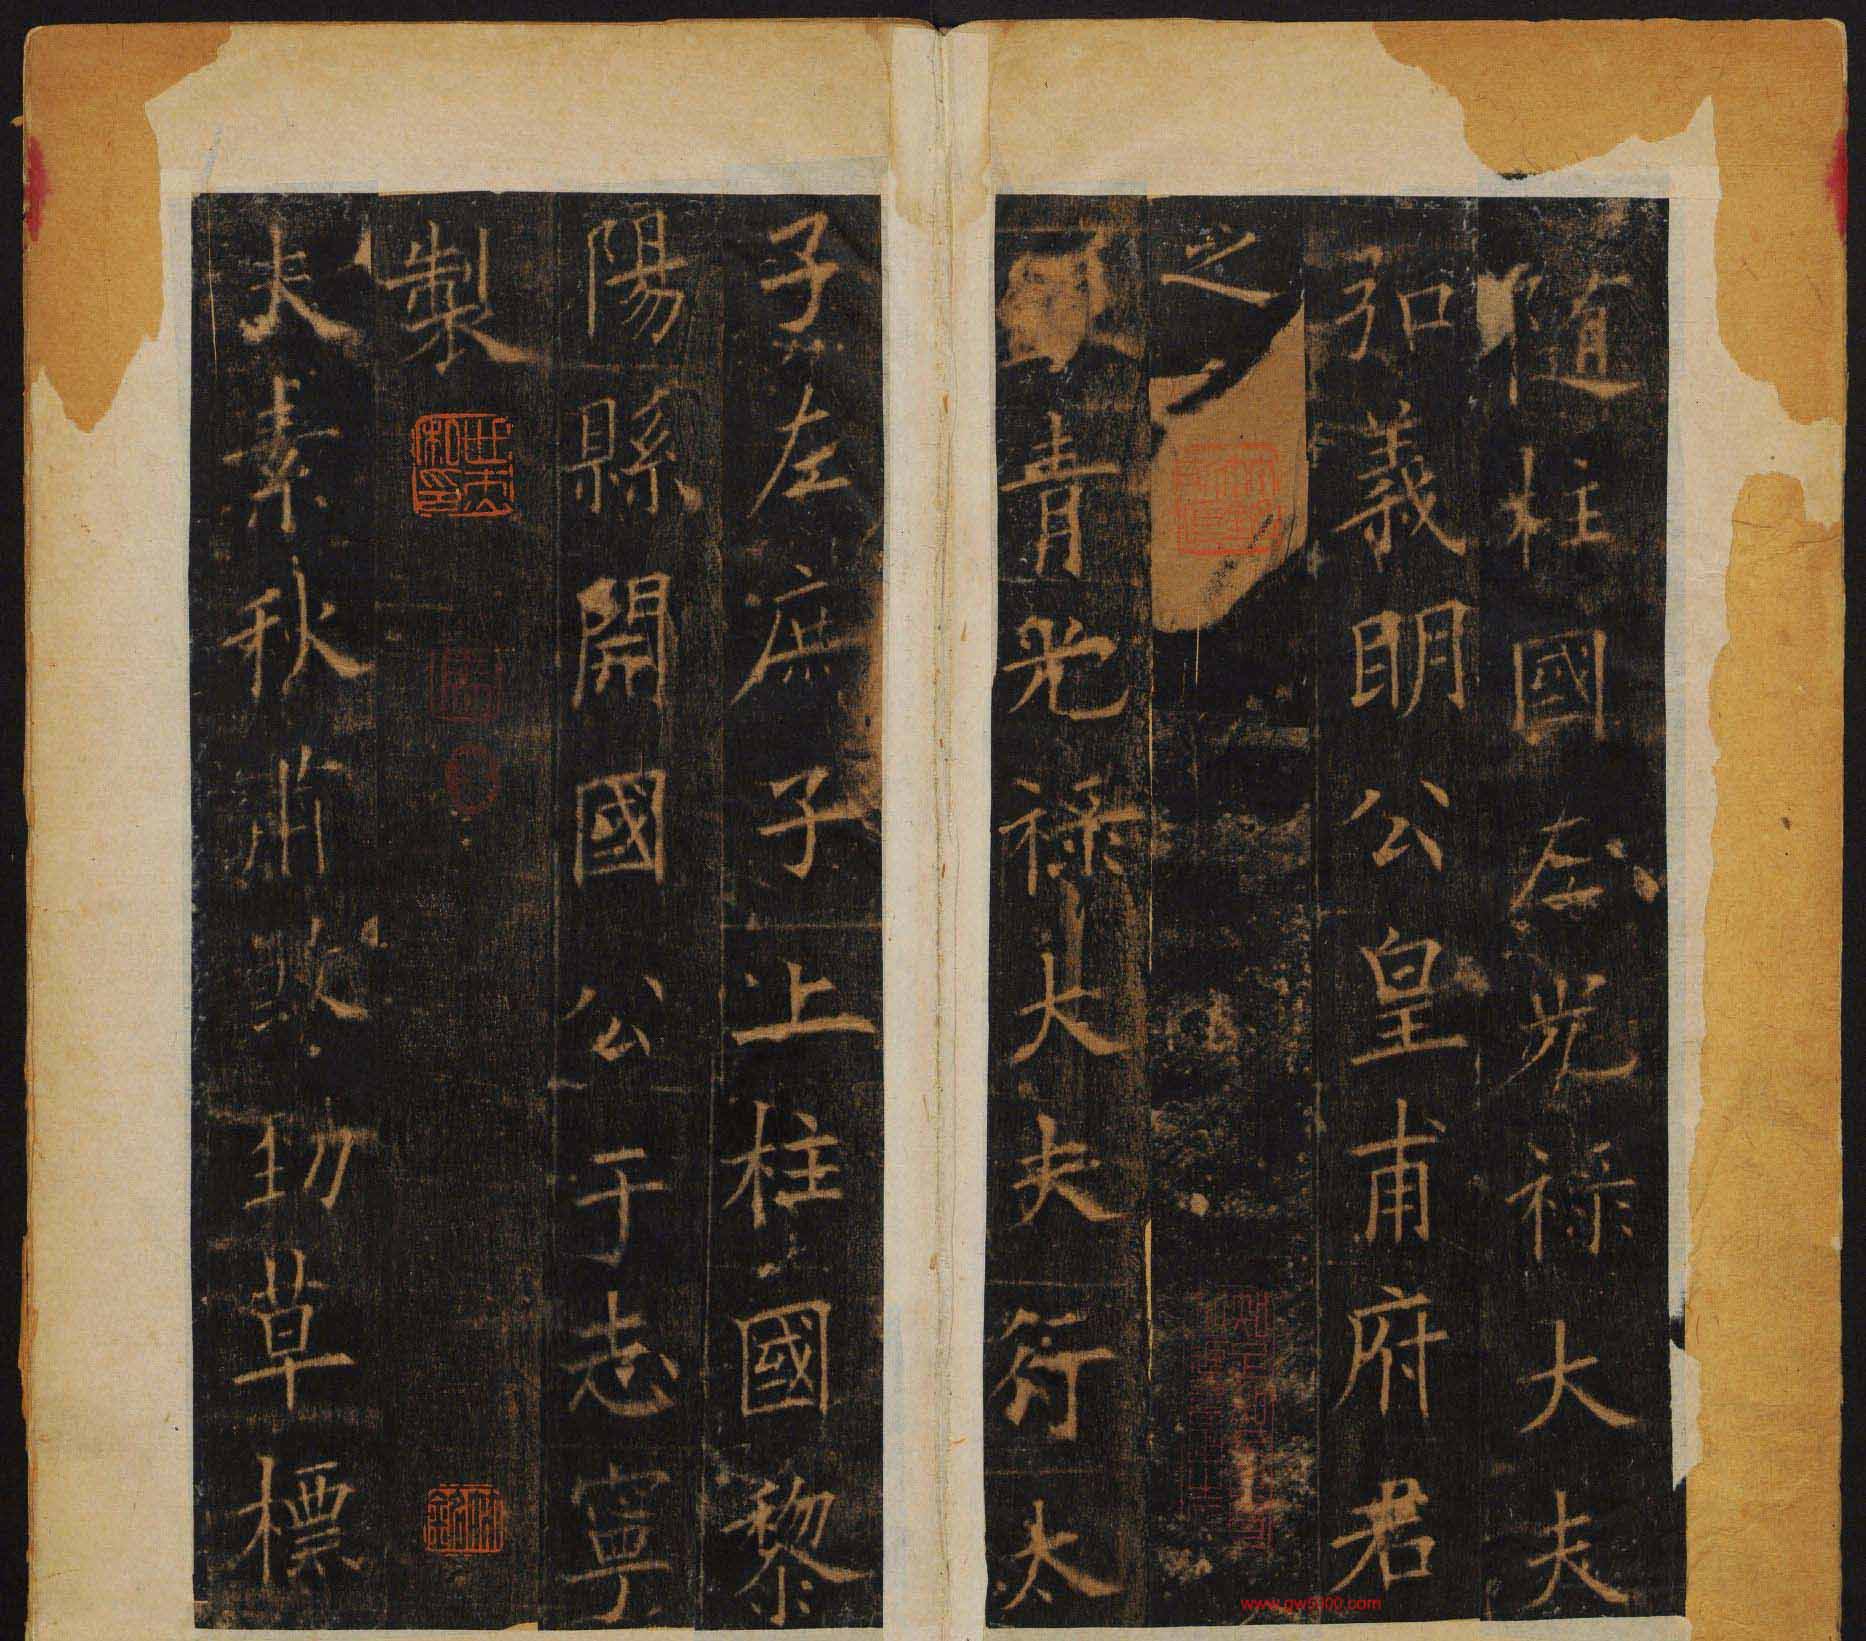 随柱國左光祿大夫
弘義明公皇甫府君
之
青光祿大夫行太
子左庶子上柱國黎
陽縣開國公于志寧
製
夫素秋肅煞勁草標
www.gw5900.com